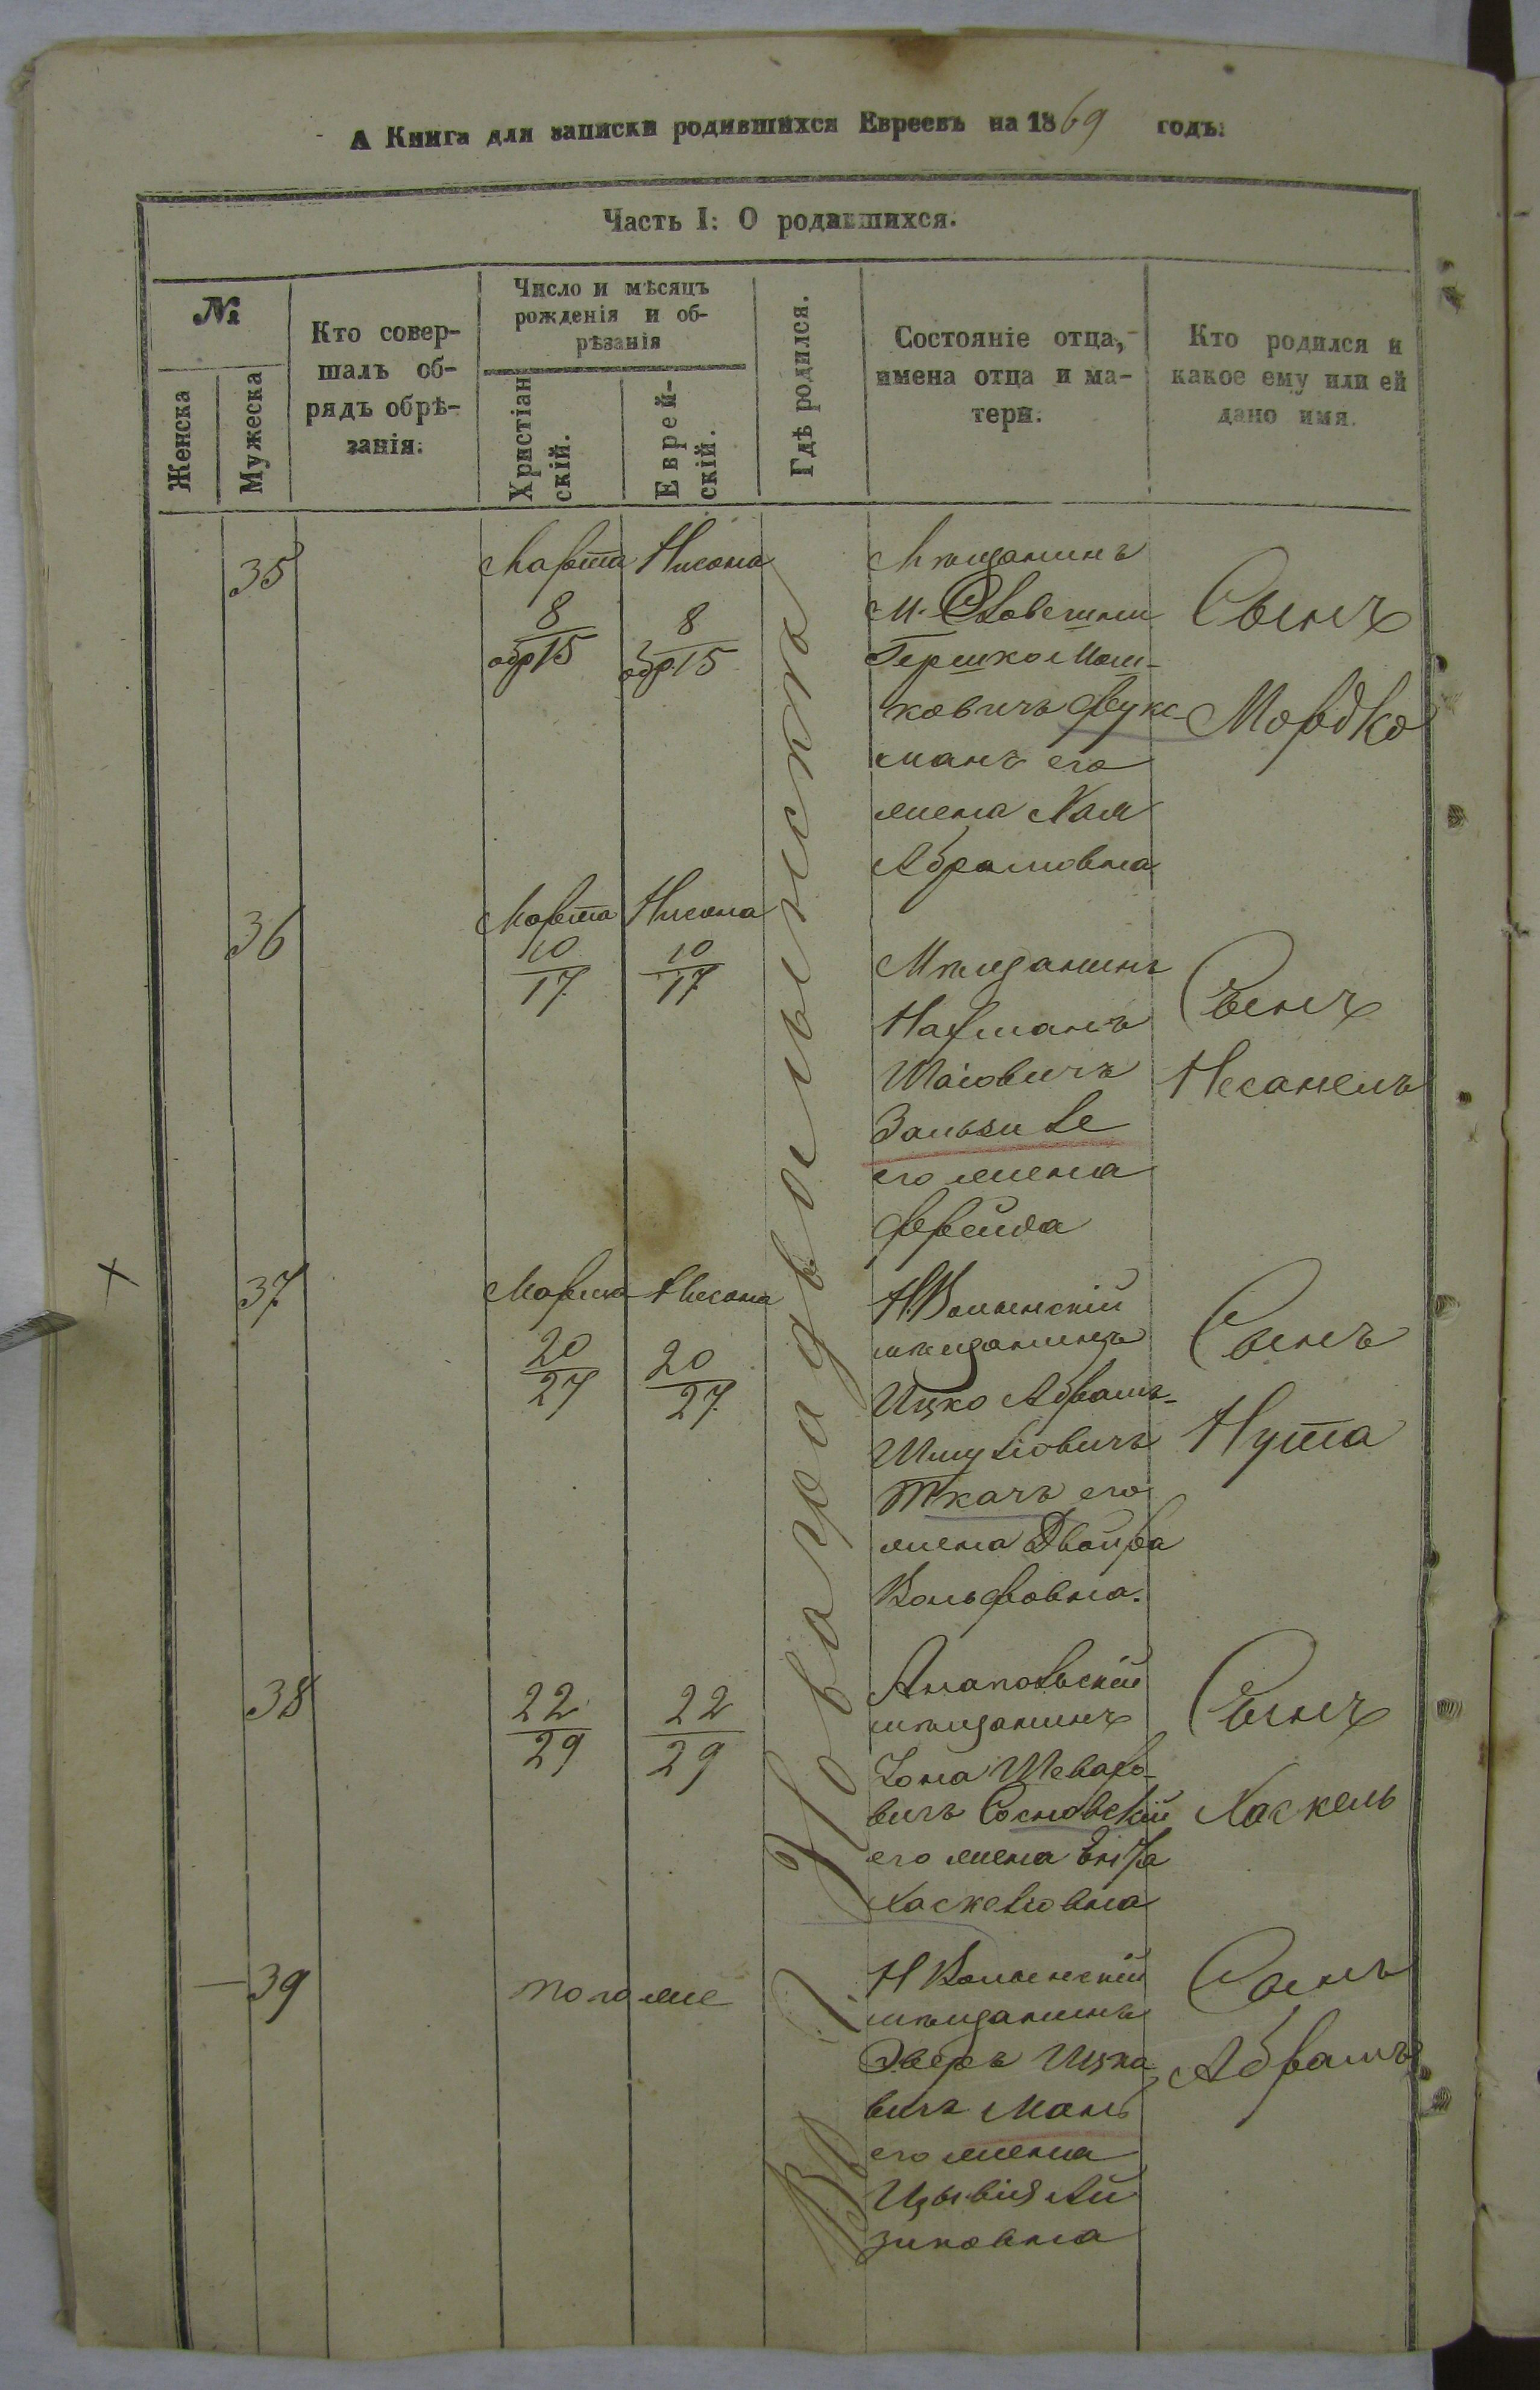 А Книга для записки родившихся Евреевъ на 1869 годъ:
Часть I: О родившихся.
№
Женска
Мужеска
Кто совер-
шалъ об-
рядъ обрѣ-
занія:
Число и мѣсяцъ
рожденія и об-
рѣзанія
Христіан
скій.
Еврей-
скій.
Гдѣ родился.
Состояніе отца,
имена отца и ма-
тери.
Кто родился и
какое ему или ей
дано имя.
В Г. Новаградволынска
35
Марта
8
обр 15
Нисона
8
обр. 15
Мѣщанинъ
М. Словешни
Гершко Мош-
ковичъ Фукс
манъ его
жена Хая
Абрамовна
Сынъ
Мордко
36
Марта
10
17.
Нисона
10
17
Мѣщанинъ
Нафманъ
Шаіовичъ
его жена
Фрейда
Сынъ
Несанель
37
Марта
20
27
Нисона
20
27.
Н.Волынскій
мѣщанинъ
Ицко Абрамъ-
Шмуліовичъ
Ткачъ его
жена Двойра
Вольфовна.
Сынъ
Нута
38
22
29
22
29
Анапольскій
мѣщанинъ
Зона
вичъ Сосновскій
его жена
Хаскеліовна
Сынъ
Хаскель
39
тогоже
Н Волынскій
мѣщанинъ
Эверъ Ицко
вичъ Манъ
его жена
Цывія Ай
зиковна
Сынъ
Абрамъ